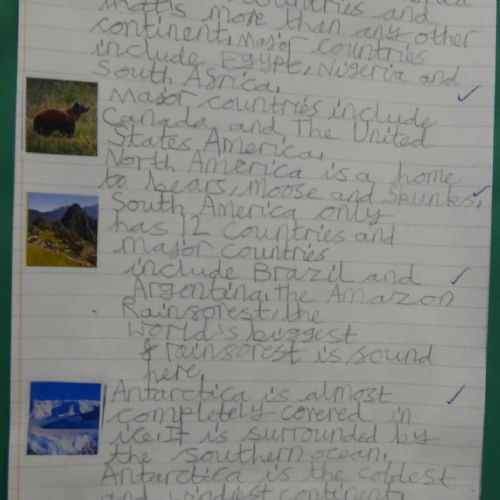 countries and
that's more than any other
continent, Major countries
include Egypt, Nigeria and
South Africa,
Major countries include
Canada and The United
States America,
North America is a home
to bears, moose and Skunks,
South America only
has 12 countries and
Major countries
include Brazil and
Argentina, the Amazon
Rainforest, the
World's biggest
rainforest is found
here,
Antarctica is almost
completely covered in
ice. It is surrounded by
the southern ocean,
Antarctica is the coldest
and windiest continent